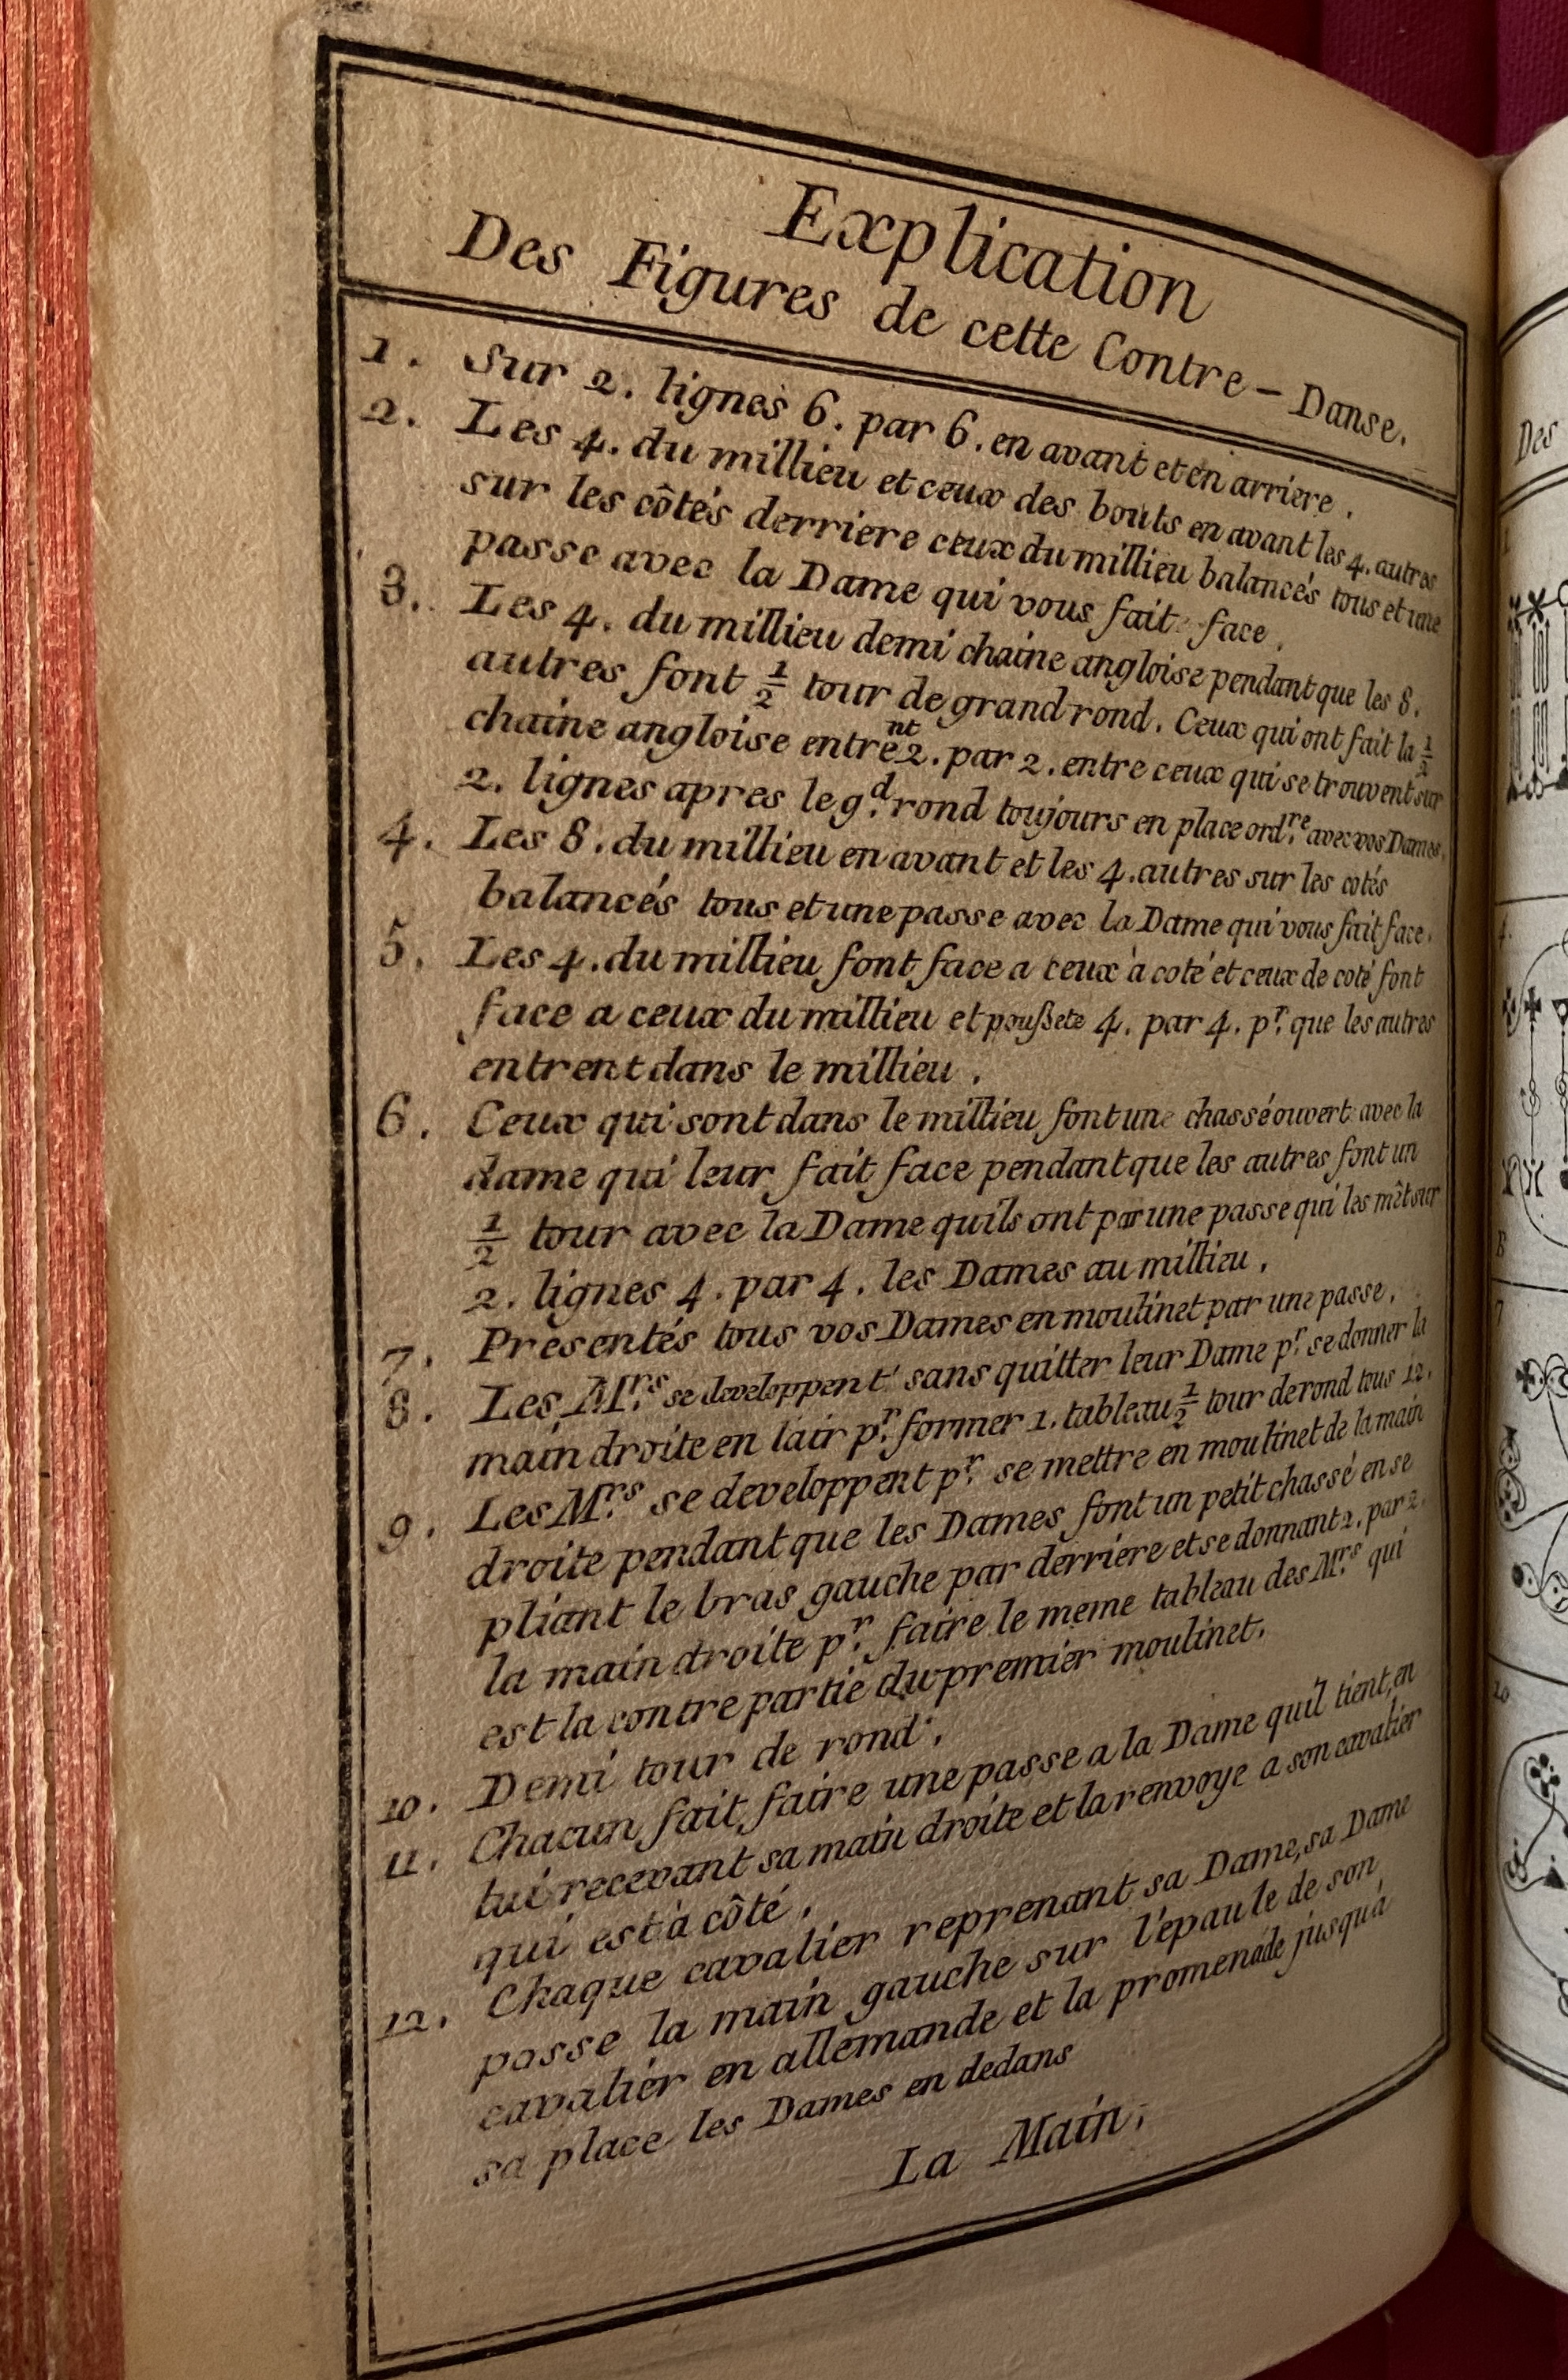 Explication
Des Figures de cette Contre-Danse.
1. Sur 2. lignes 6. par 6. en avant et en arriere.
2. Les 4. du millieu et ceux des bouts en avant les 4. autres
sur les côtés derriere ceux du millieu balancés tous et une
passe avec la Dame qui vous fait face.
3. Les 4. du millieu demi chaine angloise pendant que les 8.
autres font 1/2 tour de grand rond. Ceux qui ont fait la 1/2
chaine angloise entrent 2. par 2. entre ceux qui se trouvent sur
2. lignes apres le gd. rond toujours en place ordre. avec vos Dames.
4. Les 8. du millieu en avant et les 4. autres sur les cotés
balancés tous et une passe avec la Dame qui vous fait face.
5. Les 4. du millieu font face a ceux à coté et ceux de coté font
face a ceux du millieu et poußete 4. par 4. pr. que les autres
entrent dans le millieu.
6. Ceux qui sont dans le millieu font une chassé ouvert avec la
dame qui leur fait face pendant que les autres font un
1/2 tour avec la Dame quils ont par une passe qui les mèt sur
2. lignes 4. par 4. les Dames au millieu.
7. Presentés tous vos Dames en moulinet par une passe.
8. Les Mrs. se developpent sans quitter leur Dame pr. se donner la
main droite en lair pr. former 1. tableau 1/2 tour de rond tous 12.
9. Les Mrs. se developpent pr. se mettre en moulinet de la main
droite pendant que les Dames font un petit chassé en se
pliant le bras gauche par derriere et se donnant 2. par 2.
la main droite pr. faire le meme tableau des Mrs. qui
est la contre partie du premier moulinet.
10. Demi tour de rond.
11. Chacun fait faire une passe a la Dame quil tient, en
lui recevant sa main droite et la renvoye a son cavalier
qui est à côté.
12. Chaque cavalier reprenant sa Dame, sa Dame
passe la main gauche sur l'épaule de son
cavalier en allemande et la promenade jusquà
sa place les Dames en dedans
La Main.
Des
4.
B
7
10